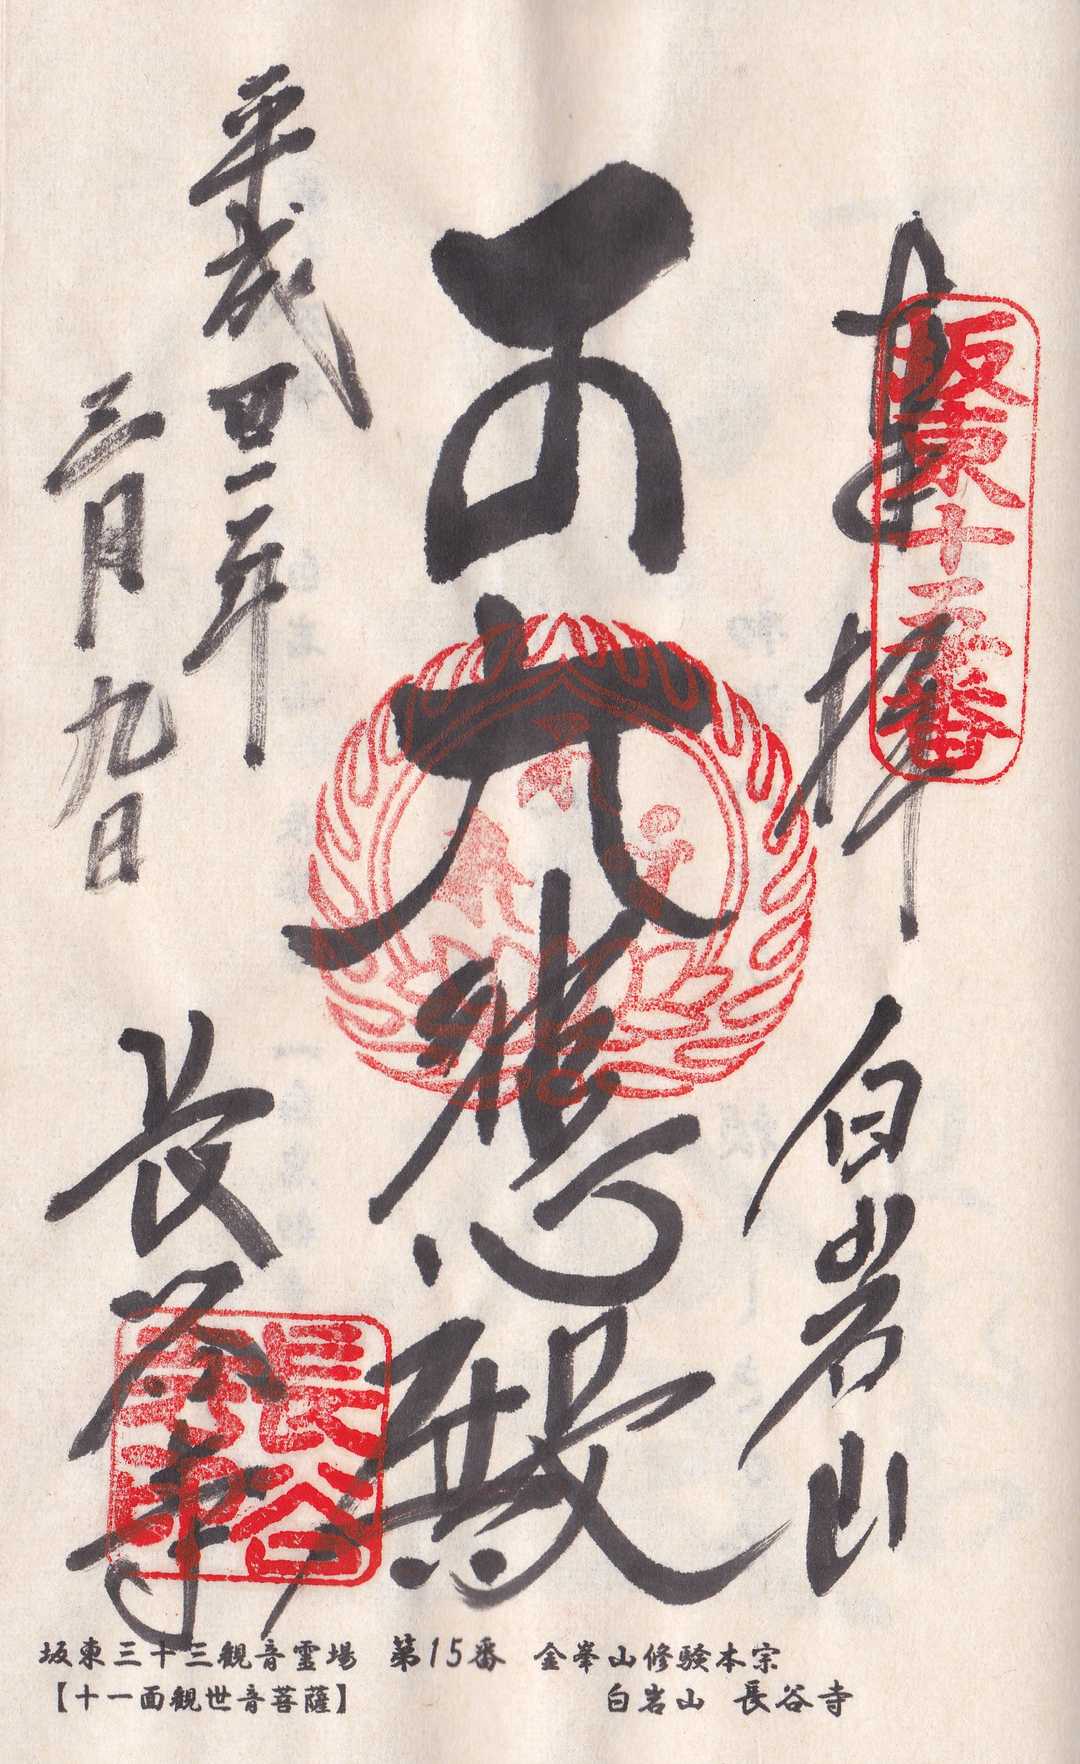 奉拝 白岩山
坂東十五番
大悲殿
平成廿二年
三月九日
長谷寺
坂東三十三観音霊場 第15番 金峯山修験本宗
【十一面観世音菩薩】 白岩山 長谷寺